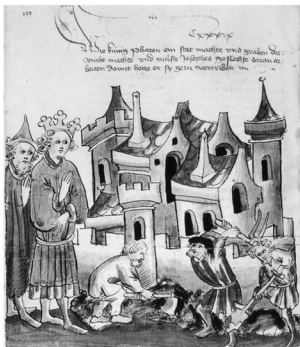 Cxxxix
Wie kunig pharaon ein stat machte vnd graben dar
vmbe machte vnd muste Josephes geslehte daran er
beiten damit hette er sy gern vertriben